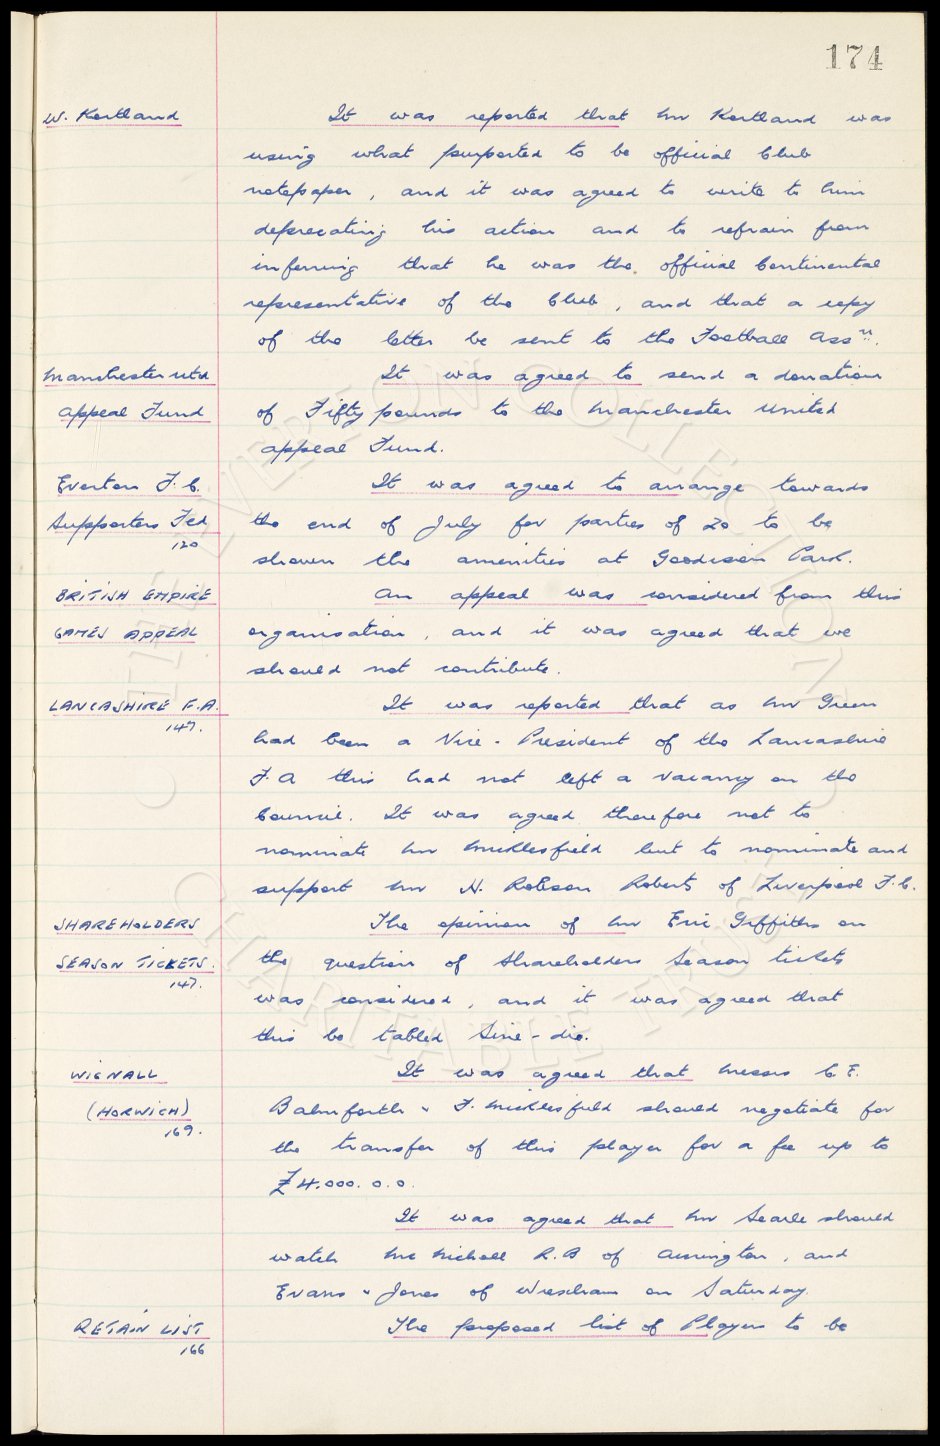 174
W. Kertland
It was reported that Mr Kertland was
using what purported to be official Club
notepaper, and it was agreed to write to him
deprecating his action and to refrain from
inferring that he was the official Continental
representative of the Club, and that a copy
of the letter be sent to the Football Assn.
Manchester Utd
It was agreed to send a donation
Appeal Fund
of Fifty pounds to the Manchester United
appeal Fund.
Everton F.C.
It was agreed to arrange towards
Supporters Fed
the end of July for parties of 20 to be
120
shown the amenities at Goodison Park.
BRITISH EMPIRE
An appeal was considered from this
GAMES APPEAL
organisation, and it was agreed that we
should not contribute.
LANCASHIRE F.A.
It was reported that as Mr Green
147.
had been a Vice-President of the Lancashire
F.A this had not left a vacancy on the
Council. It was agreed therefore not to
nominate Mr Micklesfield but to nominate and
support Mr H. Robson Roberts of Liverpool F.C.
SHAREHOLDERS
The opinion of Mr Eric Griffiths on
SEASON TICKETS.
the question of Shareholders Season tickets
147.
was considered, and it was agreed that
this be tabled Sine-die.
WIGNALL
It was agreed that Messrs C.E.
(HORWICH)
Balmforth & F. Micklesfield should negotiate for
169.
the transfer of this player for a fee up to
£4.000.0.0.
It was agreed that Mr Searle should
watch McNichol R.B of Accrington, and
Evans & Jones of Wrexham on Saturday.
RETAIN LIST
The proposed list of Players to be
166
THE EVERTON COLLECTION
CHARITABLE TRUST